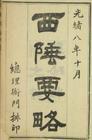 光緒八年十月
西陲要略
總理衙門排印